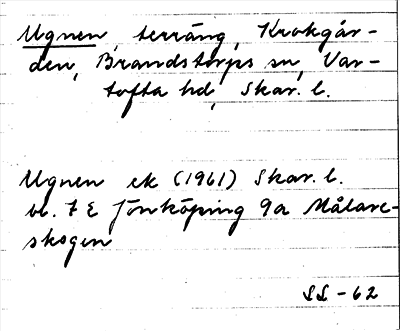 Ugnen, terräng, Krokgår-
den, Brandstorps sn, Var-
tofta hd, Skar. l.
Ugnen ek (1961) Skar. l.
bl. 7 E Jönköping 9a Målare-
skogen
SS-62